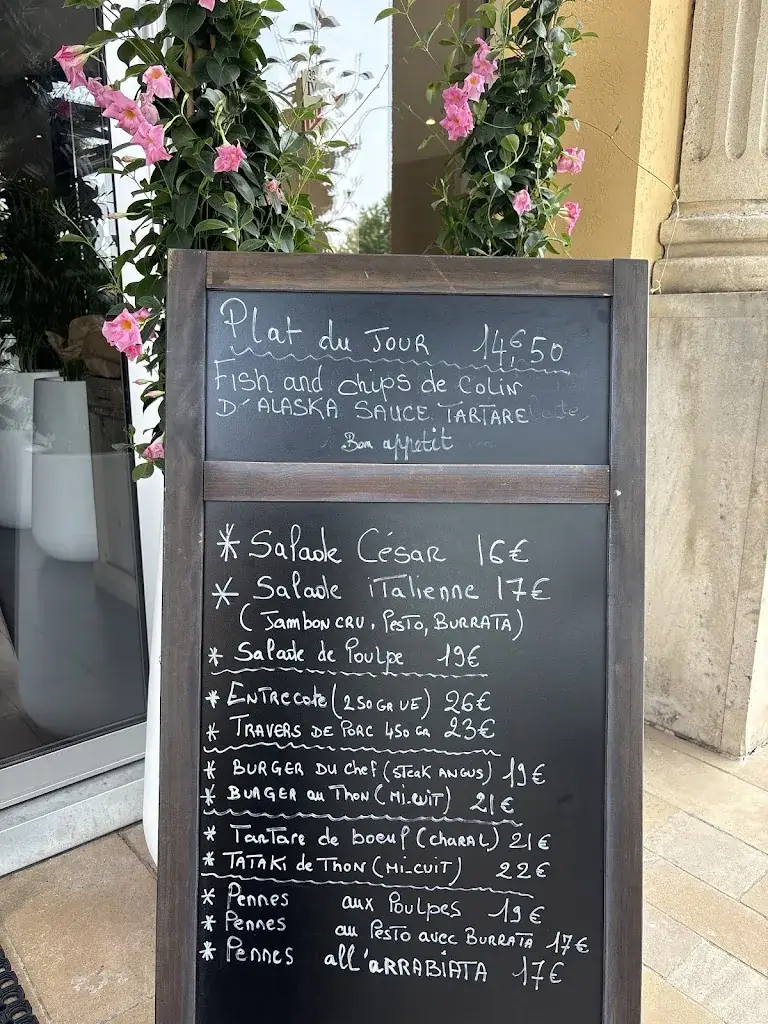 Plat du JOUR 14€50
Fish and chips de Colin
D'ALASKA SAUCE TARTARE
Bon appetit
* Salade César 16€
* Salade iTalienne 17€
(Jambon CRU, Pesto, BURRATA)
* Salade de Poulpe 19€
* Entrecote (250 GR UE) 26€
* TRAVERS DE PORC 450 GR 23€
* BURGER DU Chef (STEAK ANGUS) 19€
* BURGER au Thon (Mi-cuit) 21€
* Tartare de boeuf (CHARAL) 21€
* TATAKI de THON (Mi-CUIT) 22€
* Pennes aux Poulpes 19€
* Pennes au Pesto avec BURRATA 17€
* Pennes all'ARRABIATA 17€